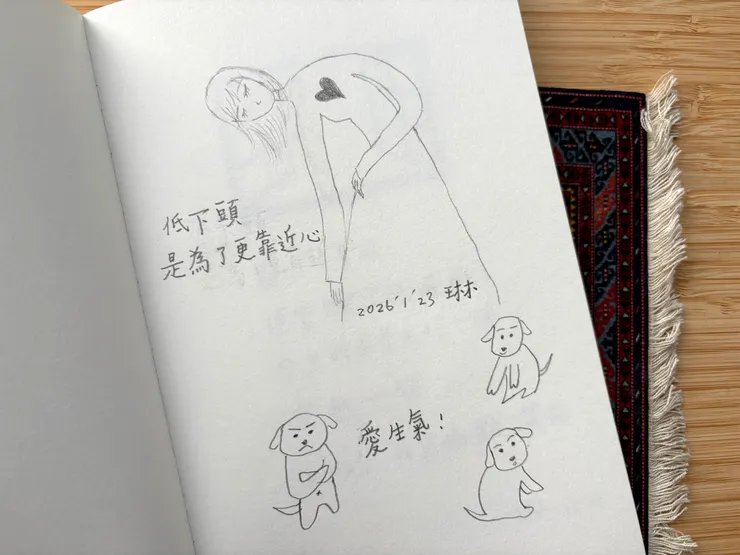 低下頭
是為了更靠近心
2026'1'23 琳
愛生氣！